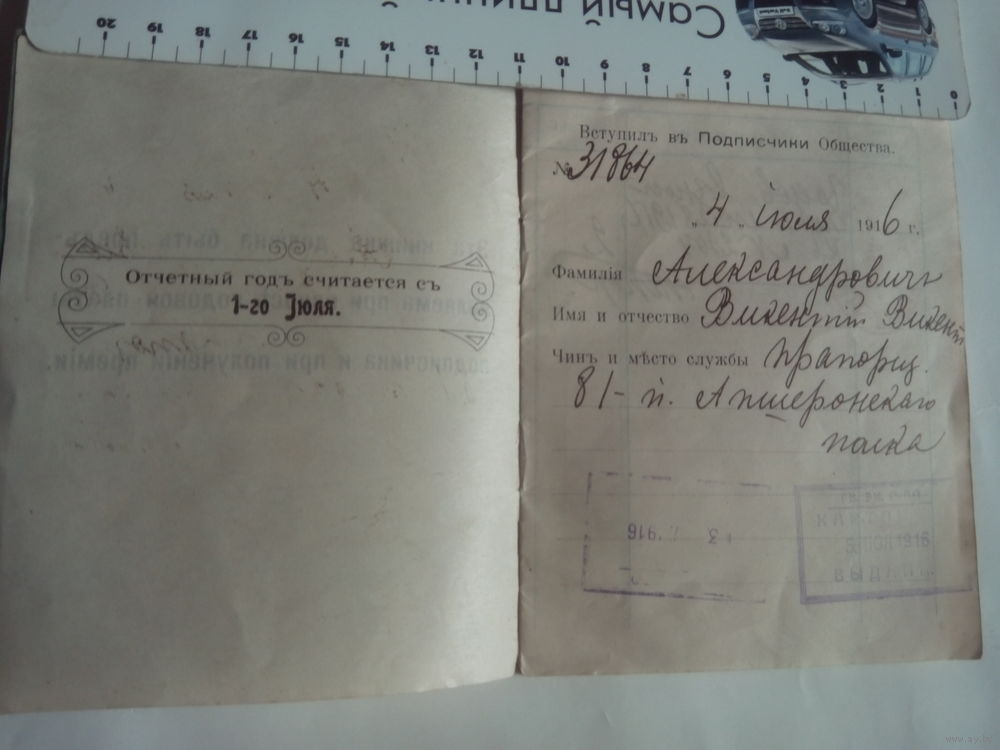 Самый длинный
20 19 18 17 16 15 14 13 12 11 10 9 8 7 6 5 4 3 2 1 0
Отчетный годъ считается съ
1-го Іюля.
Вступилъ въ Подписчики Общества.
№ 31864
„4„ іюля 1916 г.
Фамилія Александровичъ
Имя и отчество Викентій Викент
Чинъ и мѣсто службы Прапорщ.
81-й. Апшеронскаго
полка
13 . '916
5 ИЮЛ 1916
www.ay.by